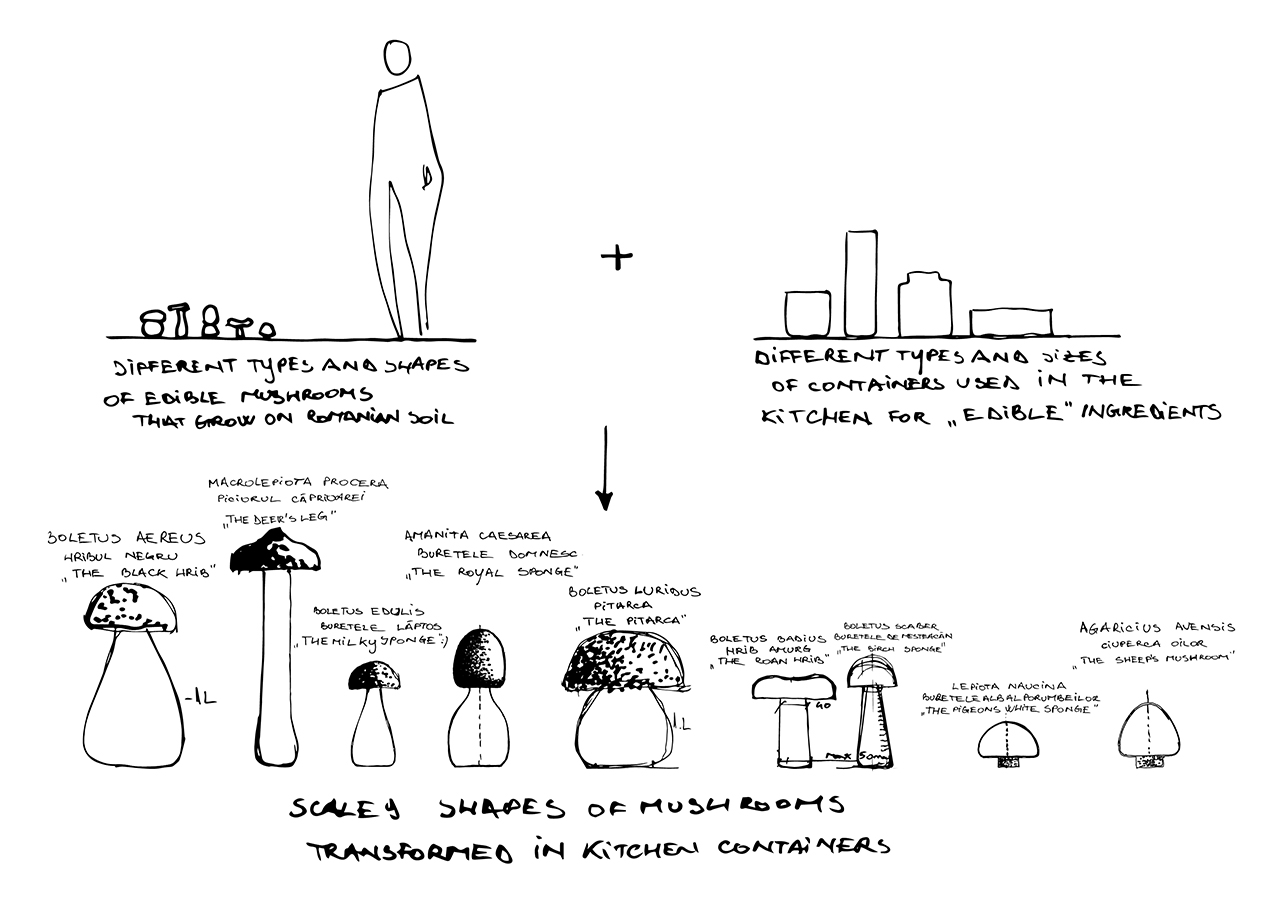 DIFFERENT TYPES AND SHAPES
OF EDIBLE MUSHROOMS
THAT GROW ON ROMANIAN SOIL
+
DIFFERENT TYPES AND SIZES
OF CONTAINERS USED IN THE
KITCHEN FOR „EDIBLE" INGREDIENTS
BOLETUS AEREUS
HRIBUL NEGRU
„THE BLACK HRIB"
1L
MACROLEPIOTA PROCERA
PICIORUL CĂPRIOAREI
„THE DEER'S LEG"
BOLETUS EDULIS
BURETELE LĂPTOS
„THE MILKY SPONGE":)
AMANITA CAESAREA
BURETELE DOMNESC
„THE ROYAL SPONGE"
BOLETUS LURIDUS
PITARCA
„THE PITARCA"
1L
BOLETUS BADIUS
HRIB AMURG
„THE ROAN HRIB"
40
BOLETUS SCABER
BURETELE DE MESTEACĂN
„THE BIRCH SPONGE"
MAX 50m
LEPIOTA NAUCINA
BURETELE ALB AL PORUMBEILOR
„THE PIGEONS WHITE SPONGE"
AGARICIUS AVENSIS
CIUPERCA OILOR
„THE SHEEP'S MUSHROOM"
SCALEY SHAPES OF MUSHROOMS
TRANSFORMED IN KITCHEN CONTAINERS